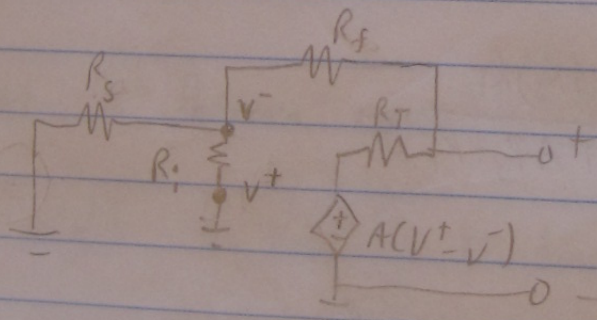 R_f
R_s
V^-
R_T
+
R_i
V^+
+
-
A(V^+ - V^-)
-